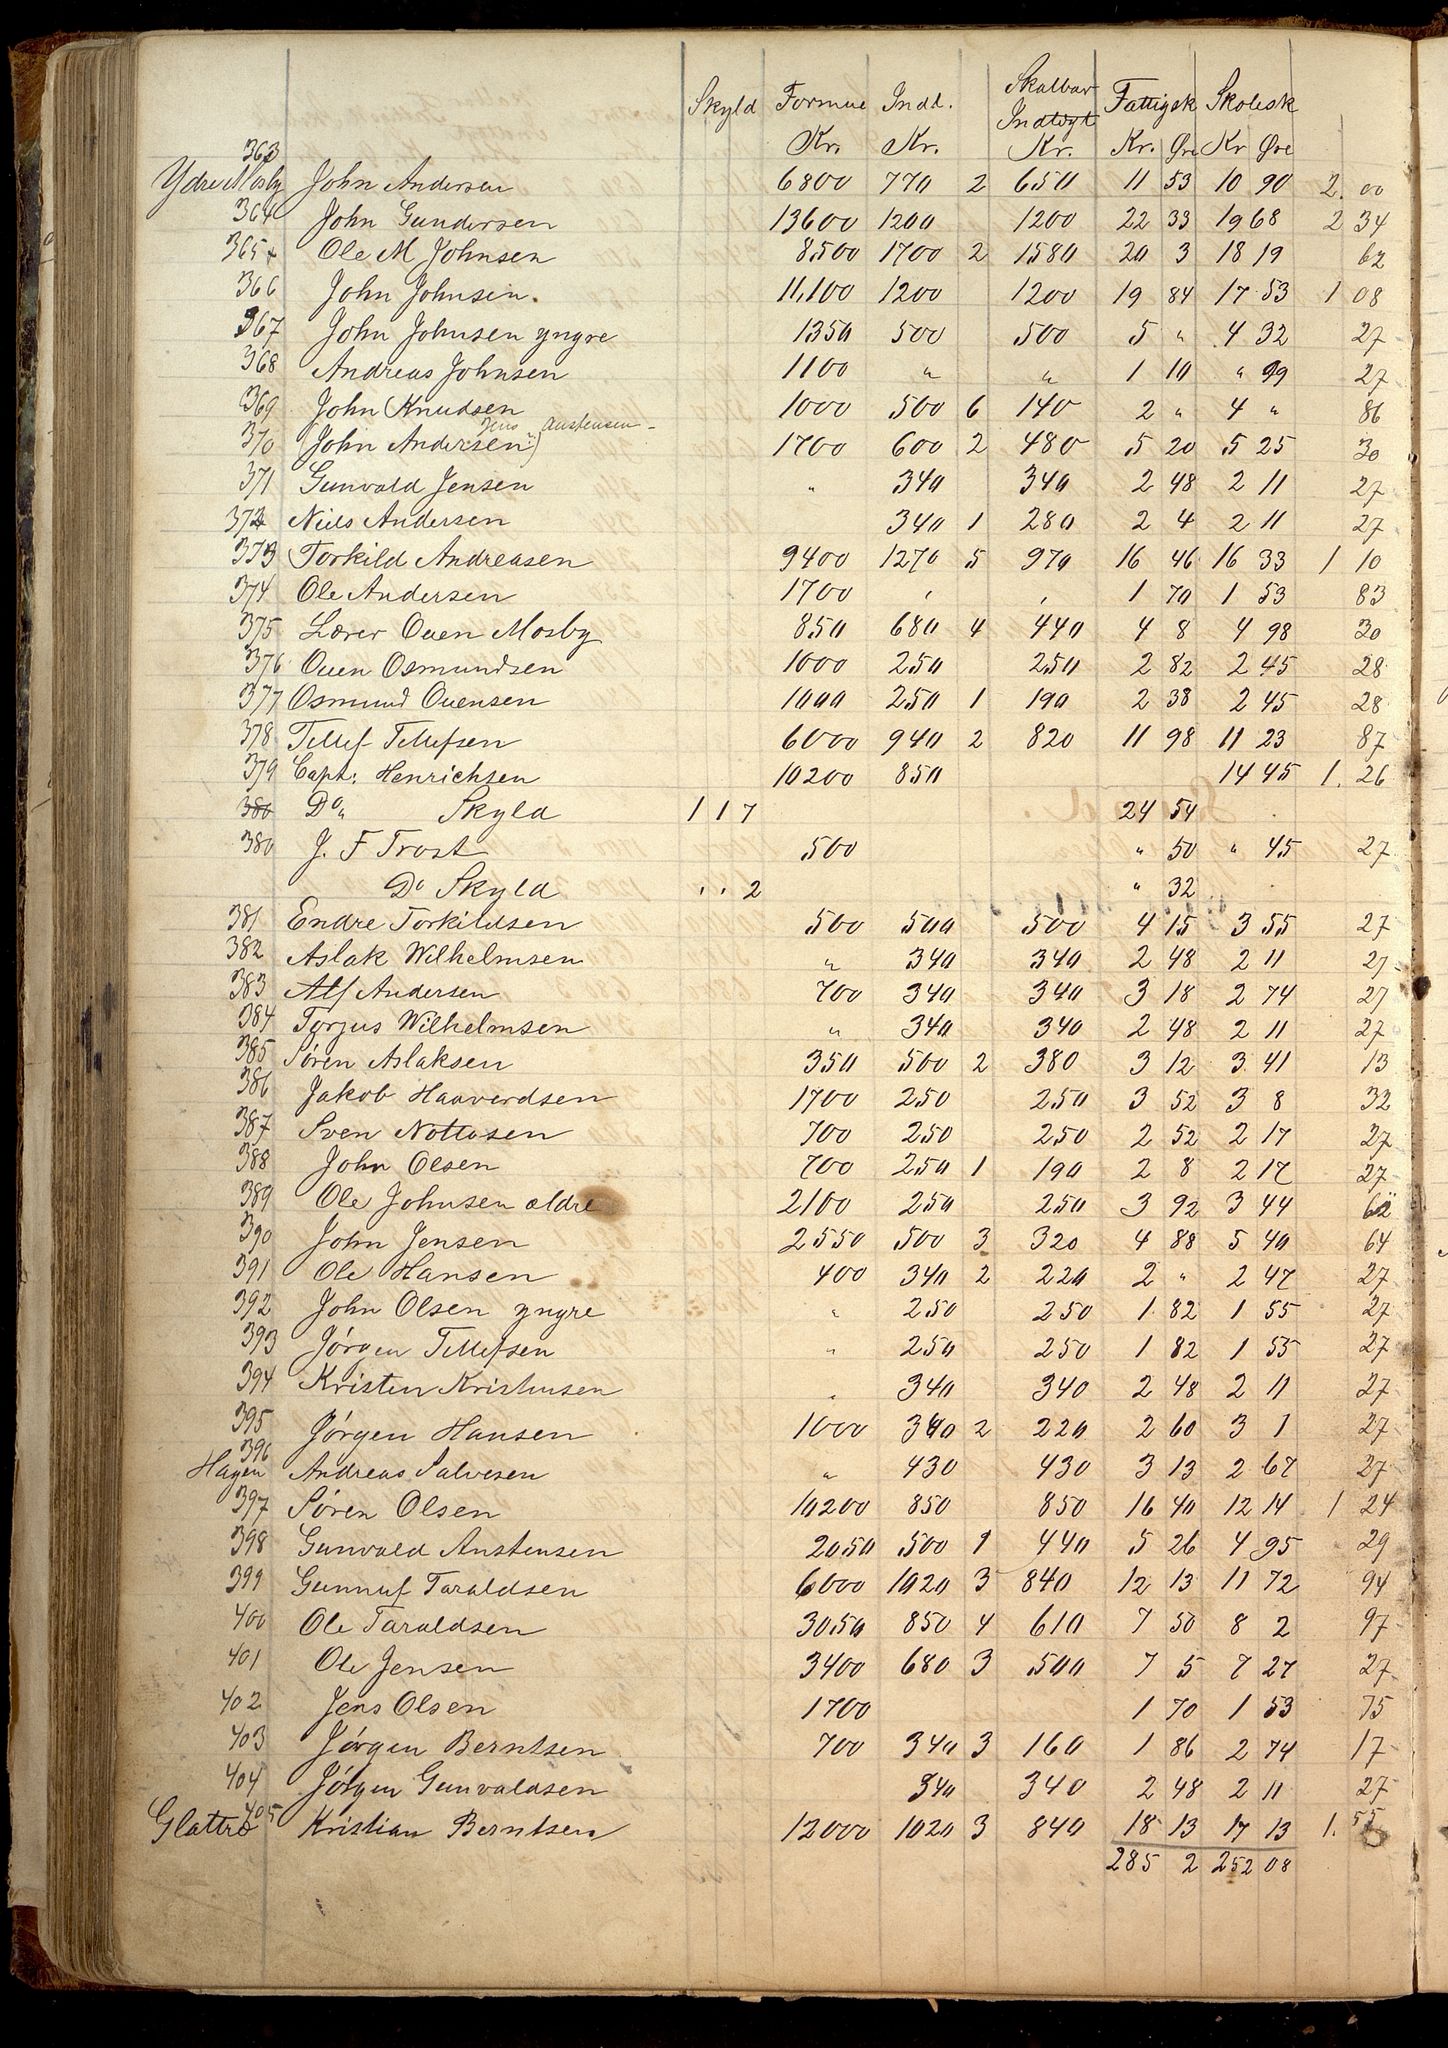 Skyld Formue Indt. Skatbar Fattigsk Skolesk
Indtegt
Kr. Kr. Kr. Kr. Øre Kr Øre
363
Ydre Mosby John Andersen 6800 770 2 650 11 53 10 90 2. 00
364 John Gundersen 13600 1200 1200 22 33 19 68 2 34
365 + Ole M Johnsen 8500 1700 2 1580 20 3 18 19 62
366 John Johnsen. 11,100 1200 1200 19 84 17 53 1 08
367 John Johnsen yngre 1350 500 500 5 " 4 32 27
368 Andreas Johnsen 1100 " " 1 10 " 99 27
369 John Knudsen 1000 500 6 140 2 " 4 " 86
Jens Austensen
370 (John Andersen) 1700 600 2 480 5 20 5 25 30
371 Gunvald Jensen " 340 340 2 48 2 11 27
372 Niels Andersen 340 1 280 2 4 2 11 27
373 Torkild Andreasen 9400 1270 5 970 16 46 16 33 1 10
374 Ole Andersen 1700 , , 1 70 1 53 83
375 Lærer Ouen Mosby 850 680 4 440 4 8 4 98 30
376 Ouen Osmundsen 1000 250 250 2 82 2 45 28
377 Osmund Ouensen 1000 250 1 190 2 38 2 45 28
378 Tellef Tellefsen 6000 940 2 820 11 98 11 23 87
379 Capt: Henrichsen 10200 850 14 45 1. 26
380 Do " Skyld 1 1 7 24 54
380 J. F Trost 500 " 50 " 45 27
Do Skyld , , 2 " 32
381 Endre Torkildsen 500 500 500 4 15 3 55 27
382 Aslak Wilhelmsen " 340 340 2 48 2 11 27
383 Alf Andersen 700 340 340 3 18 2 74 27
384 Torjus Wilhelmsen " 340 340 2 48 2 11 27
385 Søren Aslaksen 350 500 2 380 3 12 3 41 13
386 Jakob Haaverdsen 1700 250 250 3 52 3 8 32
387 Sven Nottosen 700 250 250 2 52 2 17 27
388 John Olsen 700 250 1 190 2 8 2 17 27
389 Ole Johnsen ældre 2100 250 250 3 92 3 44 62
390 John Jensen 2550 500 3 320 4 88 5 40 64
391 Ole Hansen 400 340 2 220 2 " 2 47 27
392 John Olsen yngre " 250 250 1 82 1 55 27
393 Jørgen Tellefsen " 250 250 1 82 1 55 27
394 Kristen Kristensen " 340 340 2 48 2 11 27
395 Jørgen Hansen 1000 340 2 220 2 60 3 1 27
396
Hagen Andreas Salvesen " 430 430 3 13 2 67 27
397 Søren Olsen 10200 850 850 16 40 12 14 1 24
398 Gunvald Anstensen 2050 500 1 440 5 26 4 95 29
399 Gunnuf Taraldsen 6000 1020 3 840 12 13 11 72 94
400 Ole Taraldsen 3050 850 4 610 7 50 8 2 97
401 Ole Jensen 3400 680 3 500 7 5 7 27 27
402 Jens Olsen 1700 1 70 1 53 75
403 Jørgen Berntsen 700 340 3 160 1 86 2 74 17
404 Jørgen Gunvaldsen 340 340 2 48 2 11 27
405
Glattre Kristian Berntsen 12000 1020 3 840 18 13 17 13 1. 55
285 2 252 08